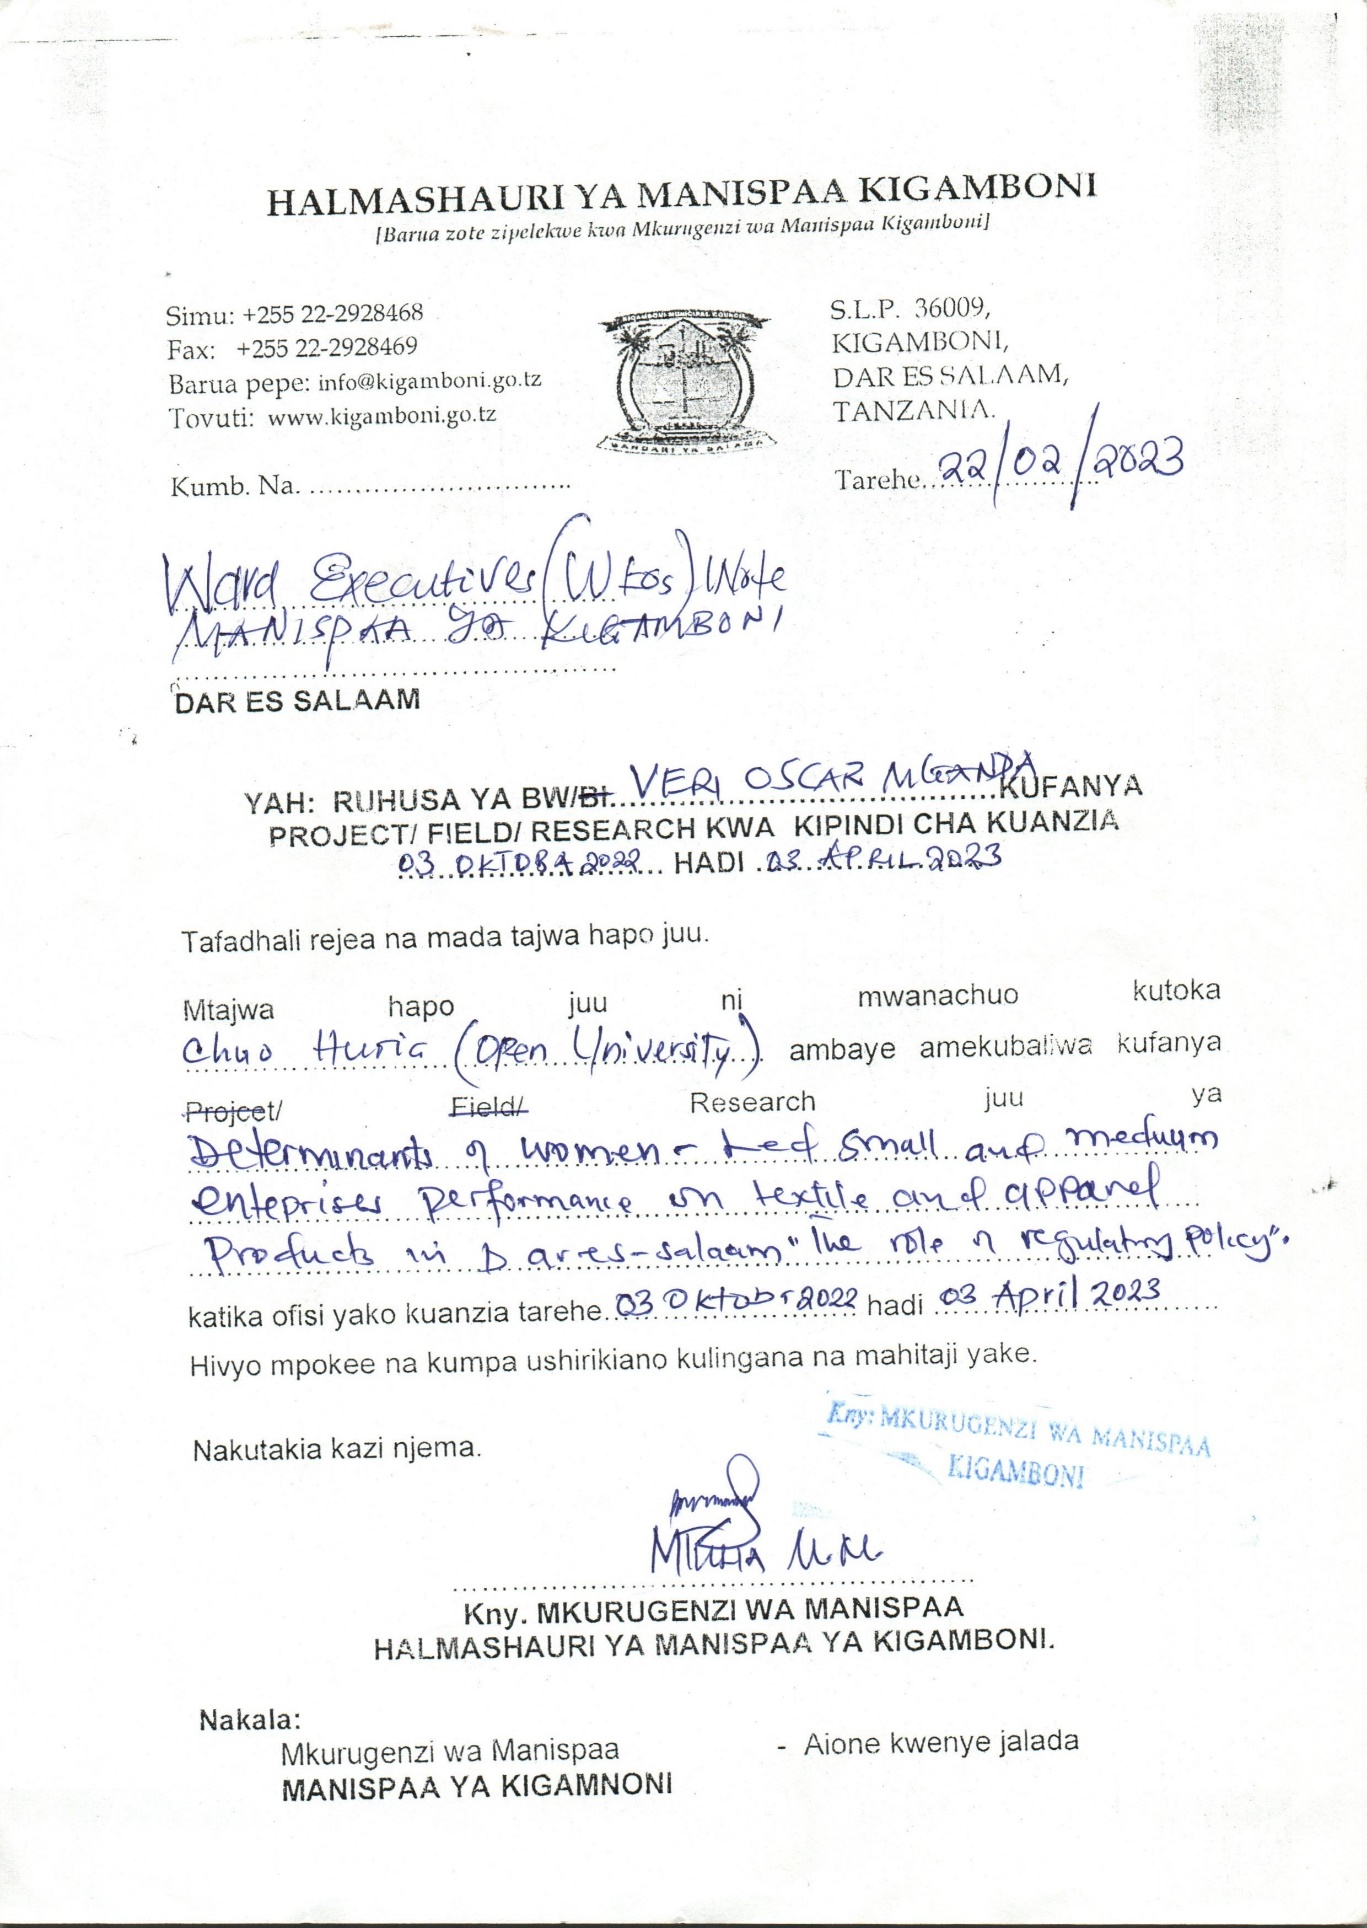 HALMASHAURI YA MANISPAA KIGAMBONI
[Barua zote zipelekwe kwa Mkurugenzi wa Manispaa Kigamboni]
Simu: +255 22-2928468
Fax: +255 22-2928469
Barua pepe: info@kigamboni.go.tz
Tovuti: www.kigamboni.go.tz
KIGAMBONI MUNICIPAL COUNCIL
BANDARI YA SALAMA
S.L.P. 36009,
KIGAMBONI,
DAR ES SALAAM,
TANZANIA.
Kumb. Na. ................................
Tarehe..22/02/2023
Ward Executives (WEOs) Wote
MANISPAA YA KIGAMBONI
DAR ES SALAAM
YAH: RUHUSA YA BW/BI. VERI OSCAR MGANDA KUFANYA
PROJECT/ FIELD/ RESEARCH KWA KIPINDI CHA KUANZIA
03 OKTOBA 2022... HADI .03 APRIL 2023
Tafadhali rejea na mada tajwa hapo juu.
Mtajwa hapo juu ni mwanachuo kutoka
Chuo Huria (Open University) ambaye amekubaliwa kufanya
Projcet/ Field/ Research juu ya
Determinants of women-Led small and meduum
enteprises performance on textile and apparel
Products in Dar-es-salaam "The role of regulatory policy".
katika ofisi yako kuanzia tarehe 03 Oktobr 2022 hadi 03 April 2023
Hivyo mpokee na kumpa ushirikiano kulingana na mahitaji yake.
Nakutakia kazi njema.
Kny: MKURUGENZI WA MANISPAA
KIGAMBONI
M.M.
Kny. MKURUGENZI WA MANISPAA
HALMASHAURI YA MANISPAA YA KIGAMBONI.
Nakala:
Mkurugenzi wa Manispaa - Aione kwenye jalada
MANISPAA YA KIGAMNONI